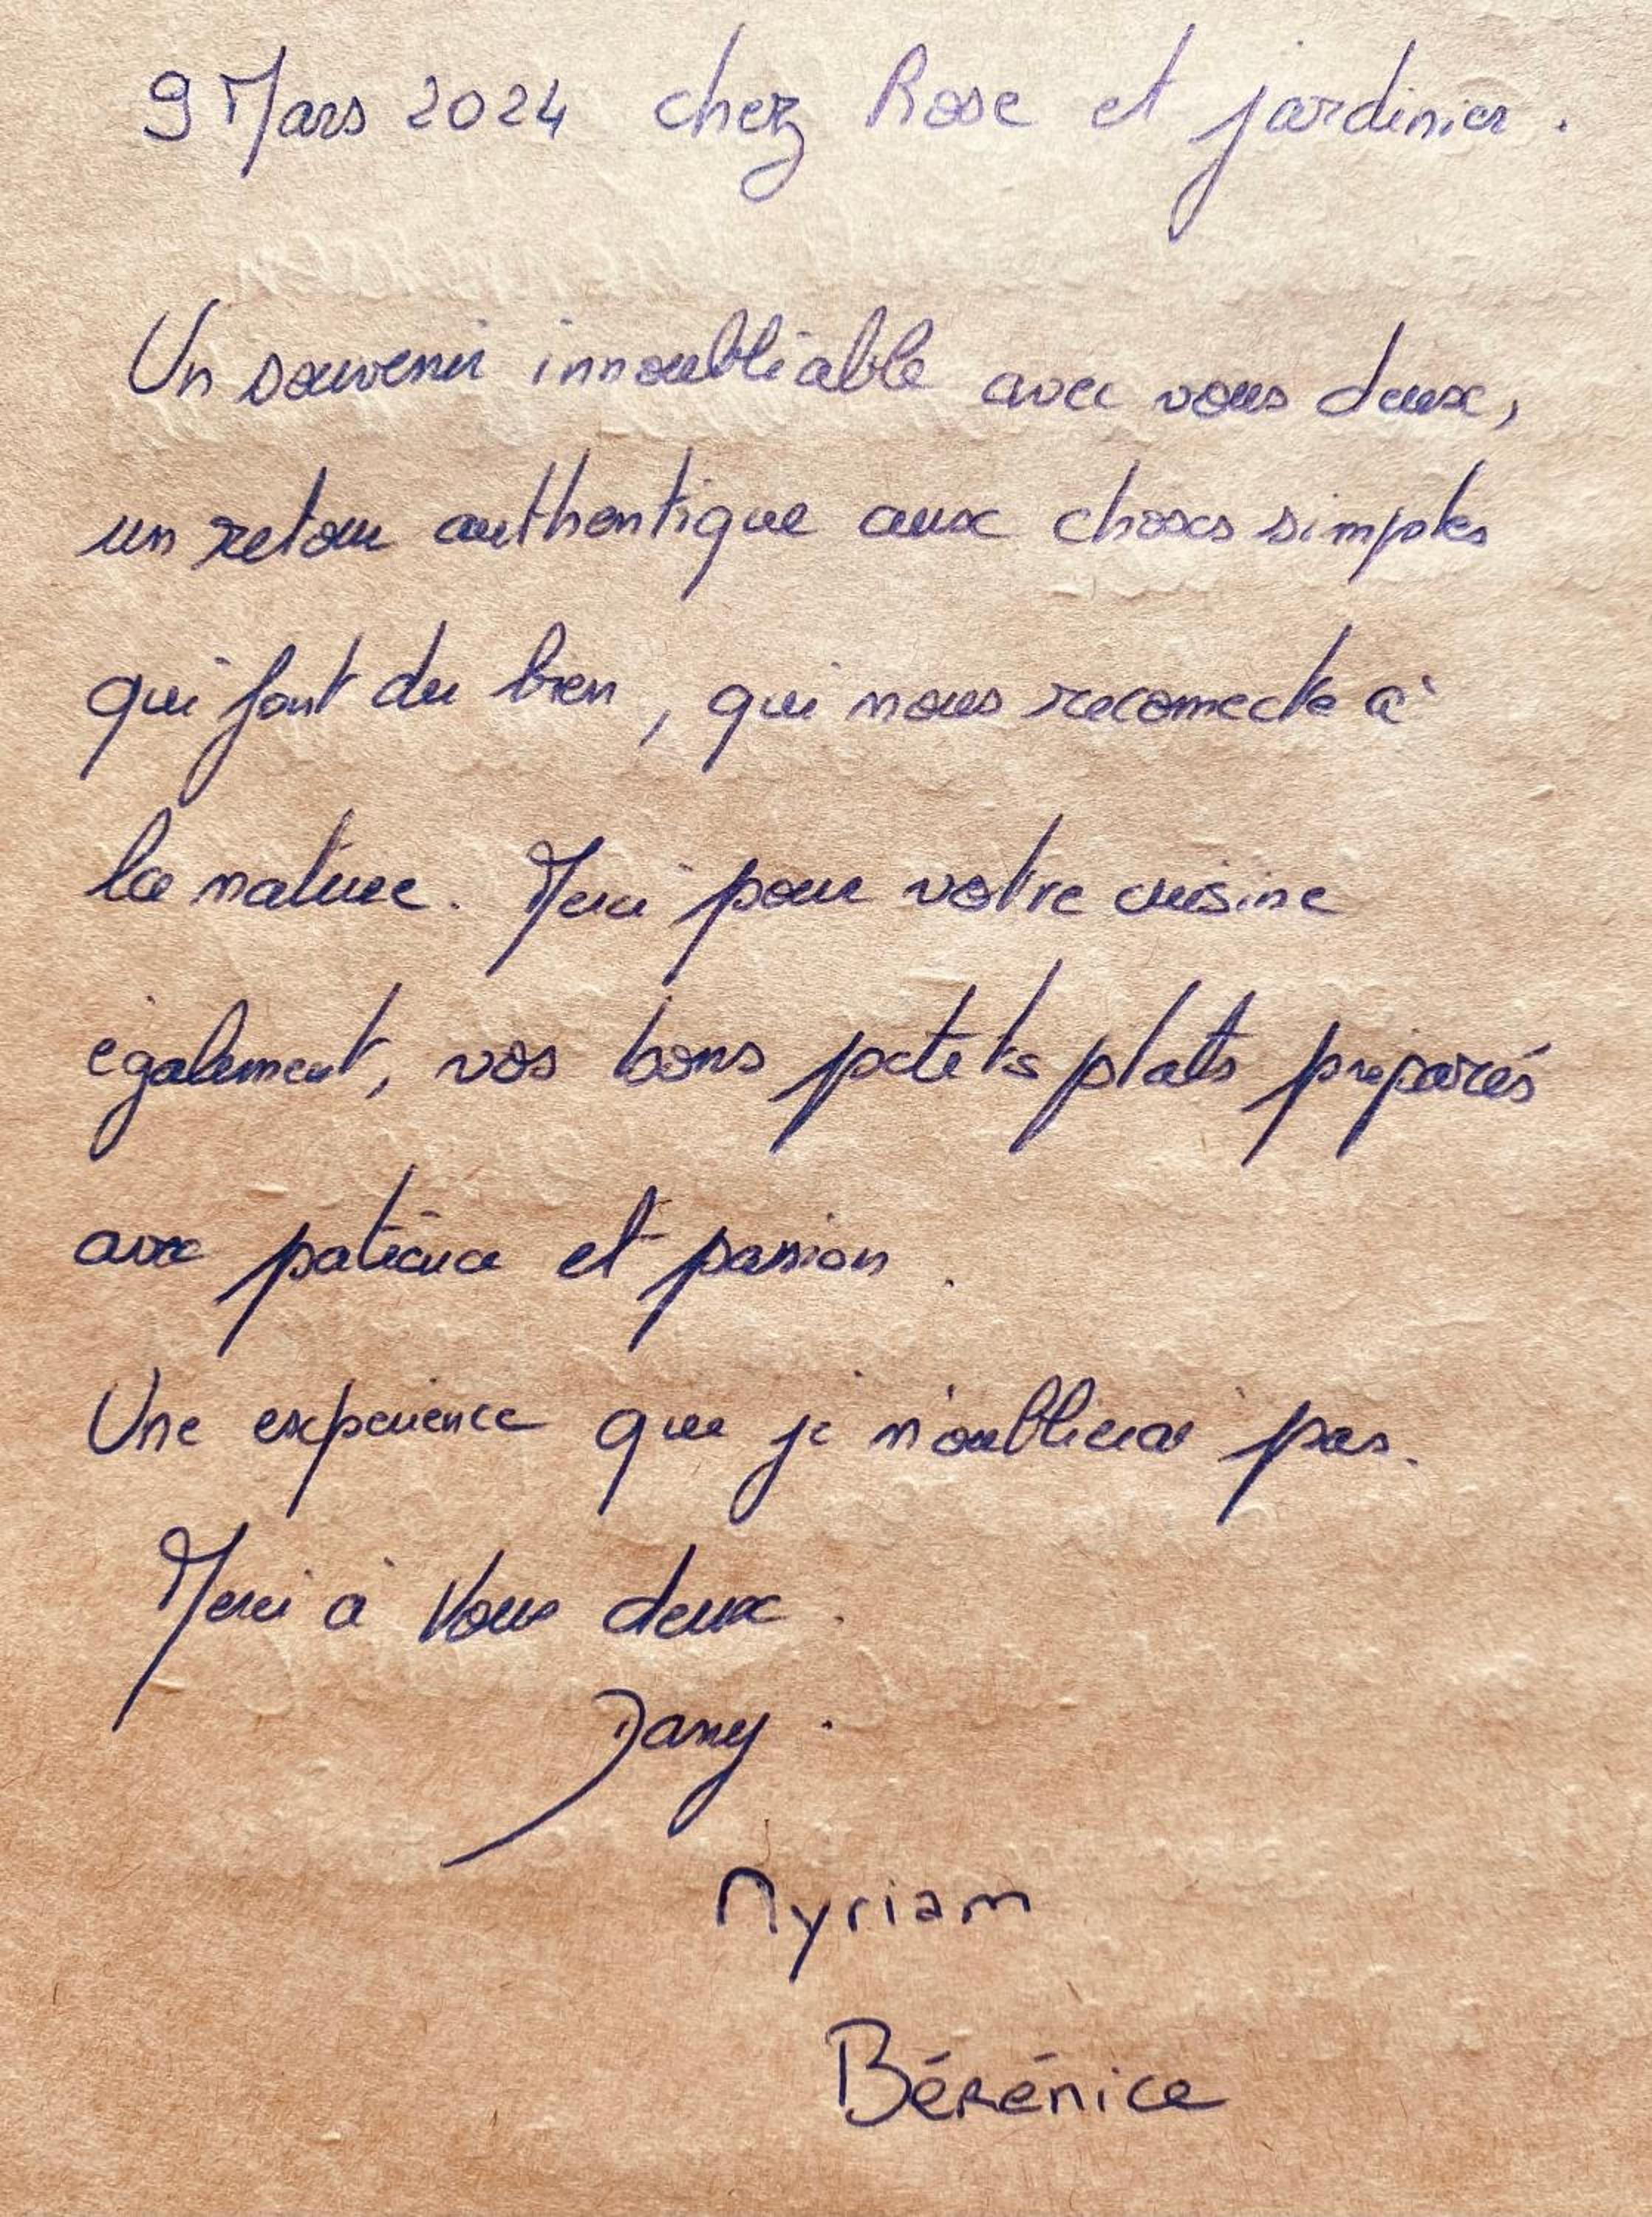 9 Mars 2024 chez Rose et jardinier.
Un souvenir innoubliable avec vous deux,
un retour authentique aux choses simples
qui font du bien, qui nous reconnecte à
la nature. Merci pour votre cuisine
également, vos bons petits plats préparés
avec patience et passion.
Une expérience que je n'oublierai pas.
Merci à Vous deux.
Dany.
Myriam
Bérénice